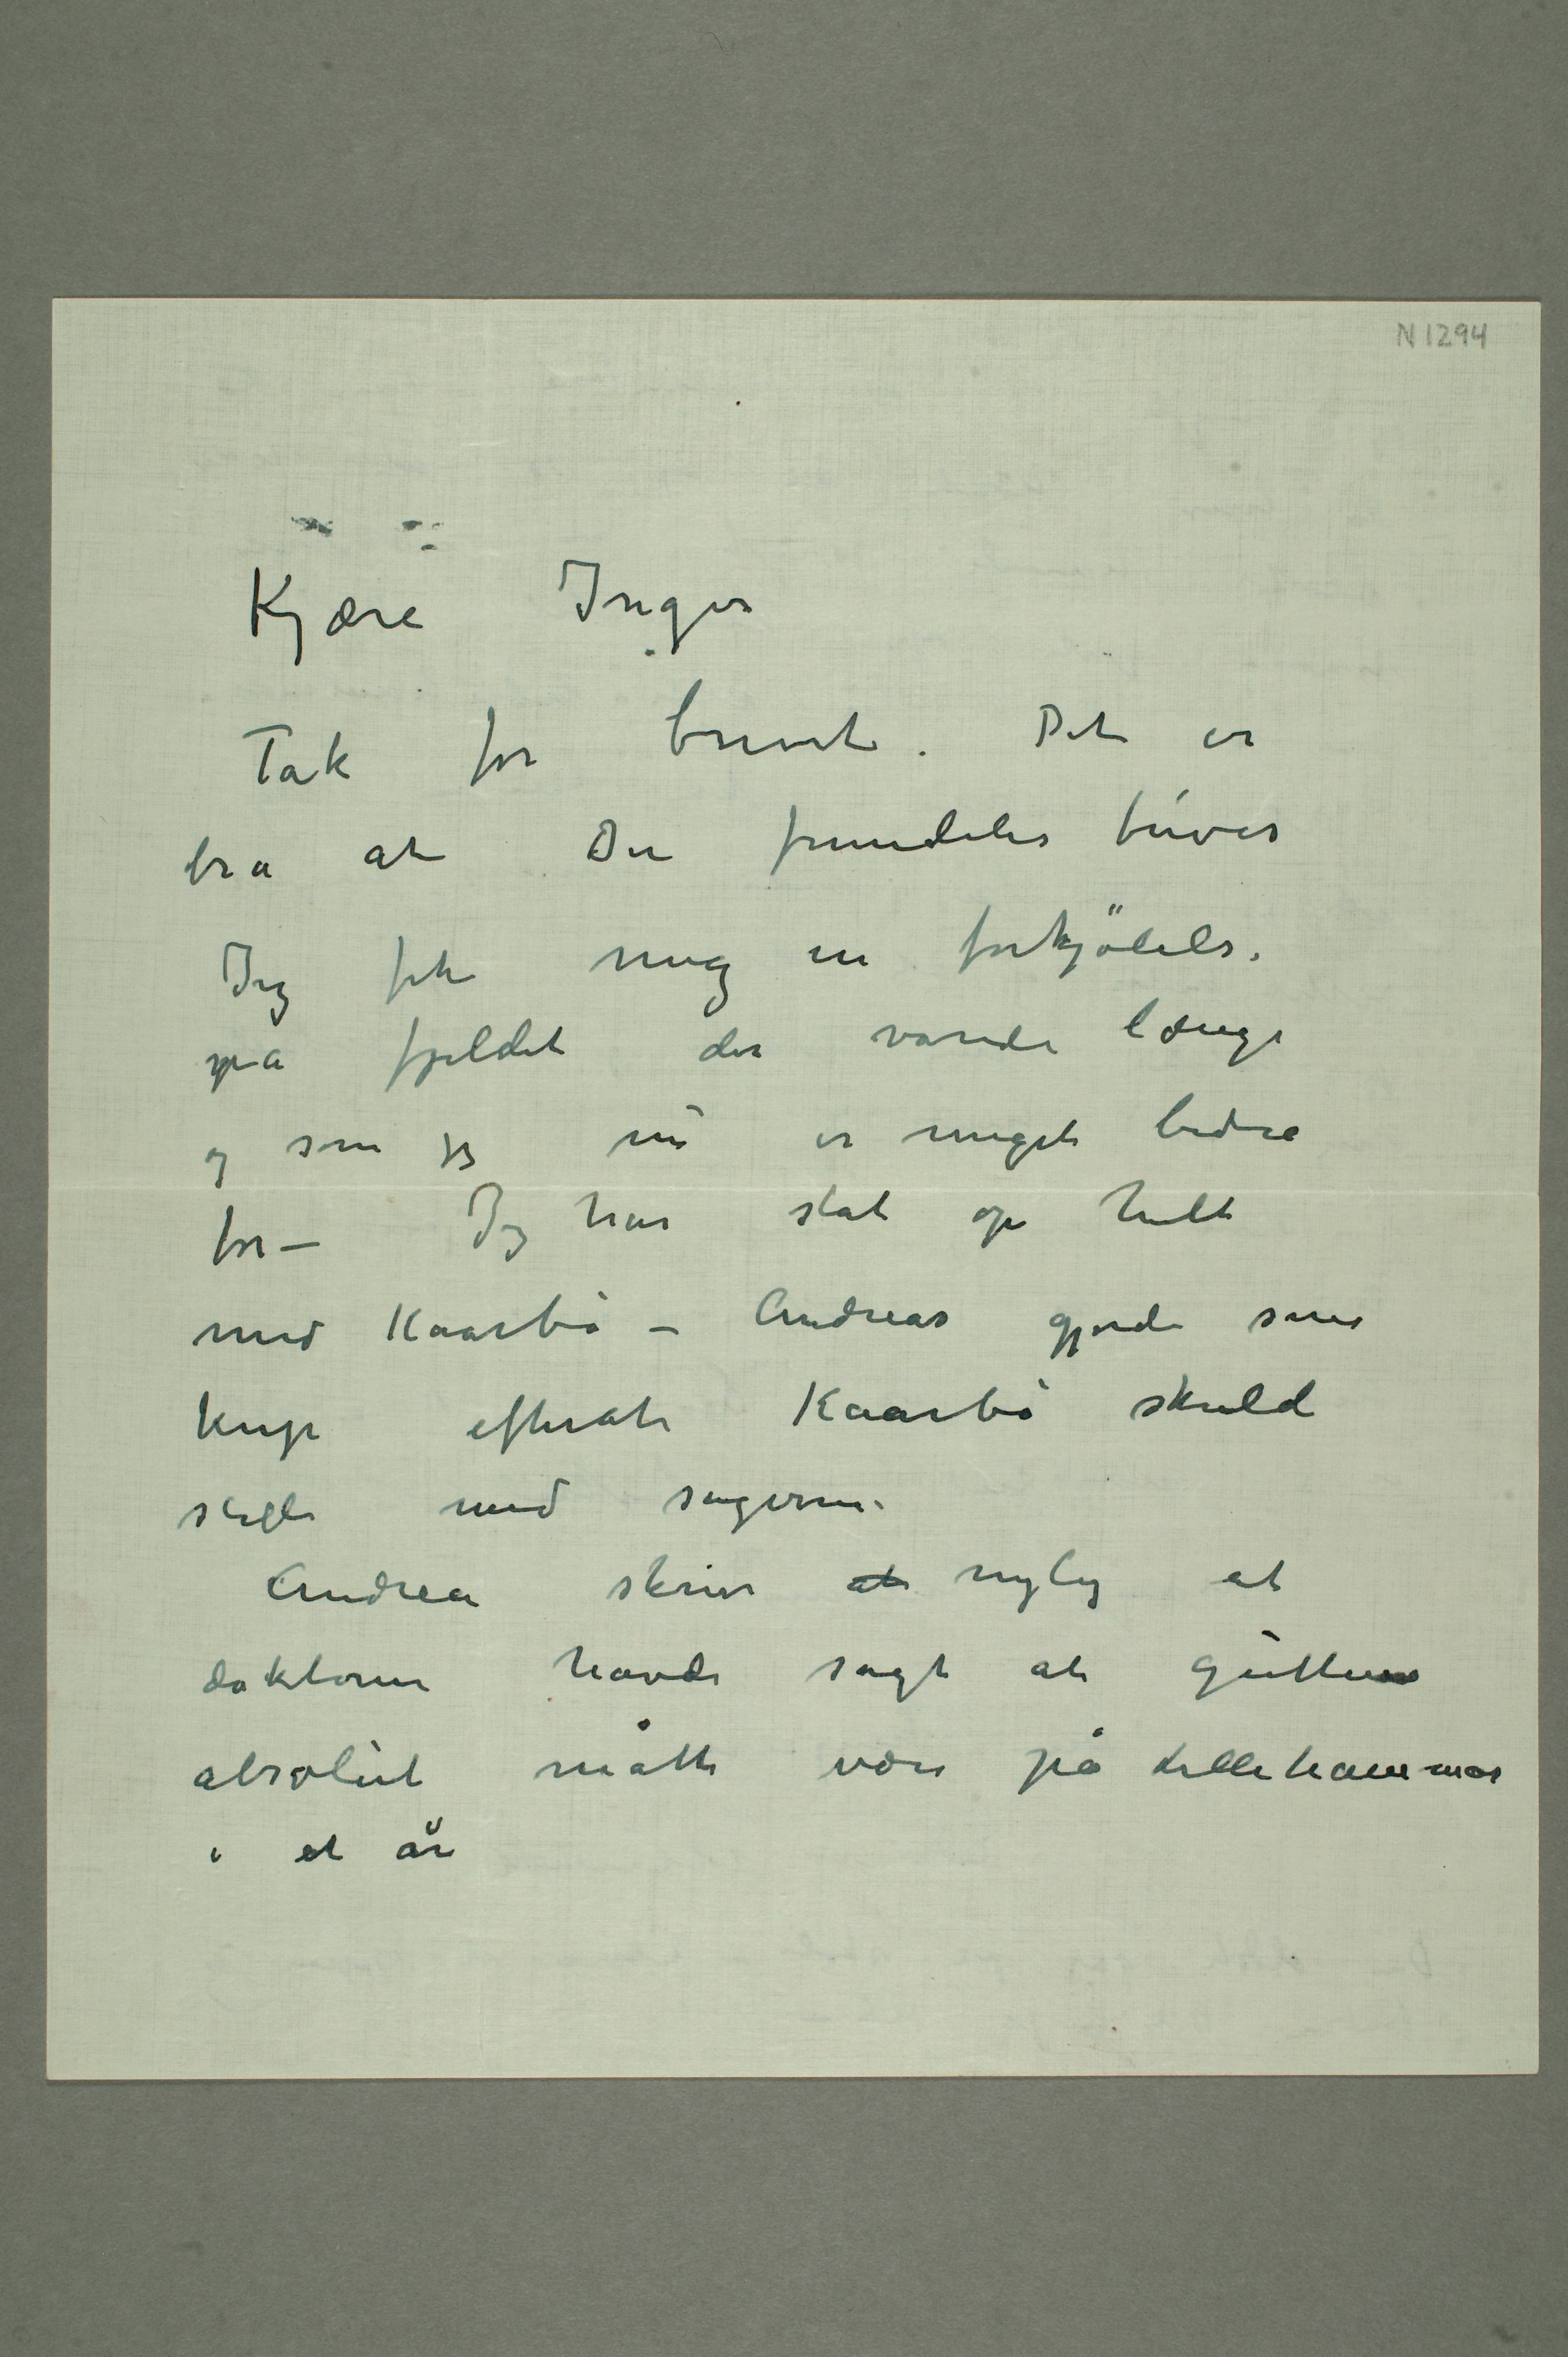 N 1294
Kjære Inger
Tak for brevet. Det er
bra at Du fremdeles trives
Jeg fik mig en forkjölelse
på fjeldet der varede længe
og som jeg nu er meget bedre
for – Jeg har slåt op helt
med Kaarbö – Andreas gjorde sine
knep efterat Kaarbö skuld
stelle med sagerne.
Andrea skrev at nylig at
doktoren havde sagt at gutten
absolut måtte være på Lillehammer
i et år